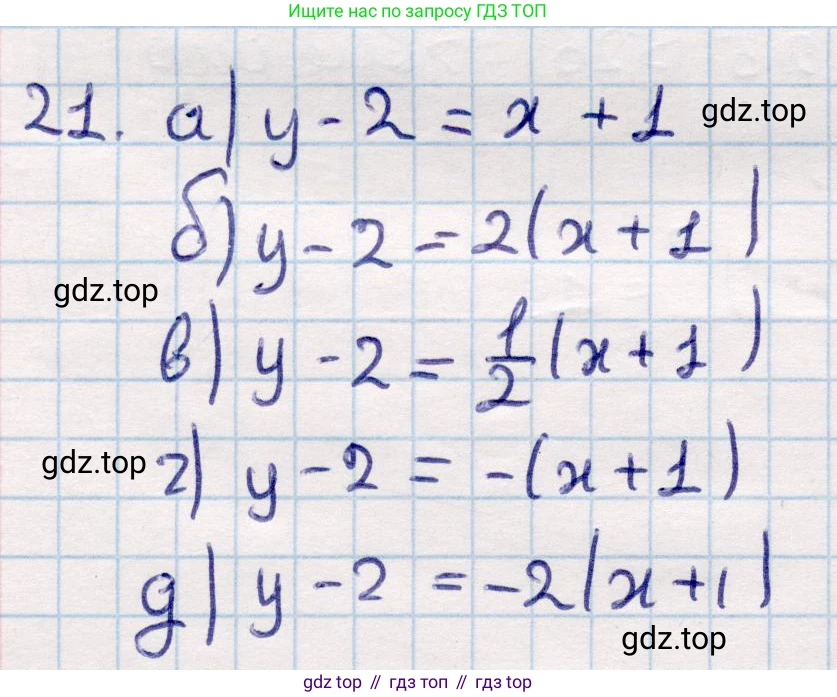 Ищите нас по запросу ГДЗ ТОП
21. а) y - 2 = x + 1 gdz.top
б) y - 2 = 2(x + 1)
gdz.top
в) y - 2 = 1/2 (x + 1)
gdz.top г) y - 2 = -(x + 1)
д) y - 2 = -2(x + 1)
gdz.top
gdz top // гдз топ // gdz top